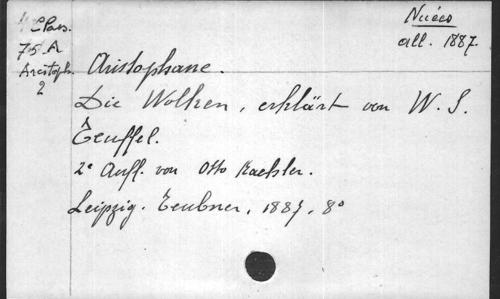 Class.
75.A
Aristoph.
2
Nuées
all. 1887.
Aristophane.
Die Wolken, erklärt von W. S.
Teuffel.
2e Aufl. von Otto Kaehler.
Leipzig. Teubner, 1887, 8o